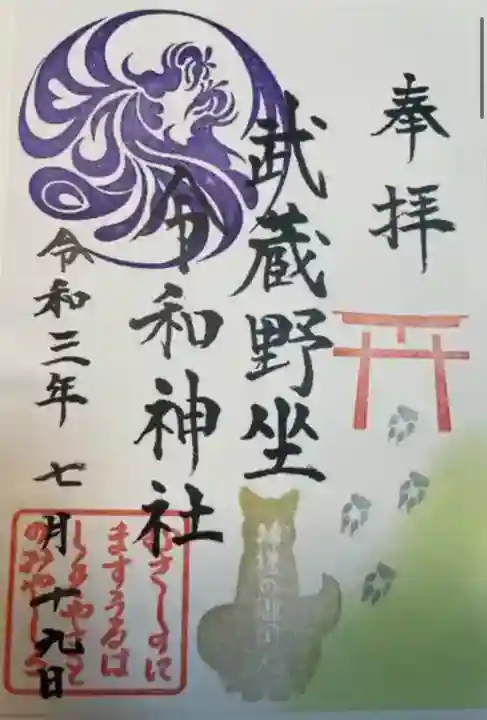 奉拝
武蔵野坐
令和神社
令和三年 七月十九日
むさしのに
ますうるは
しきやまと
のみやしろ